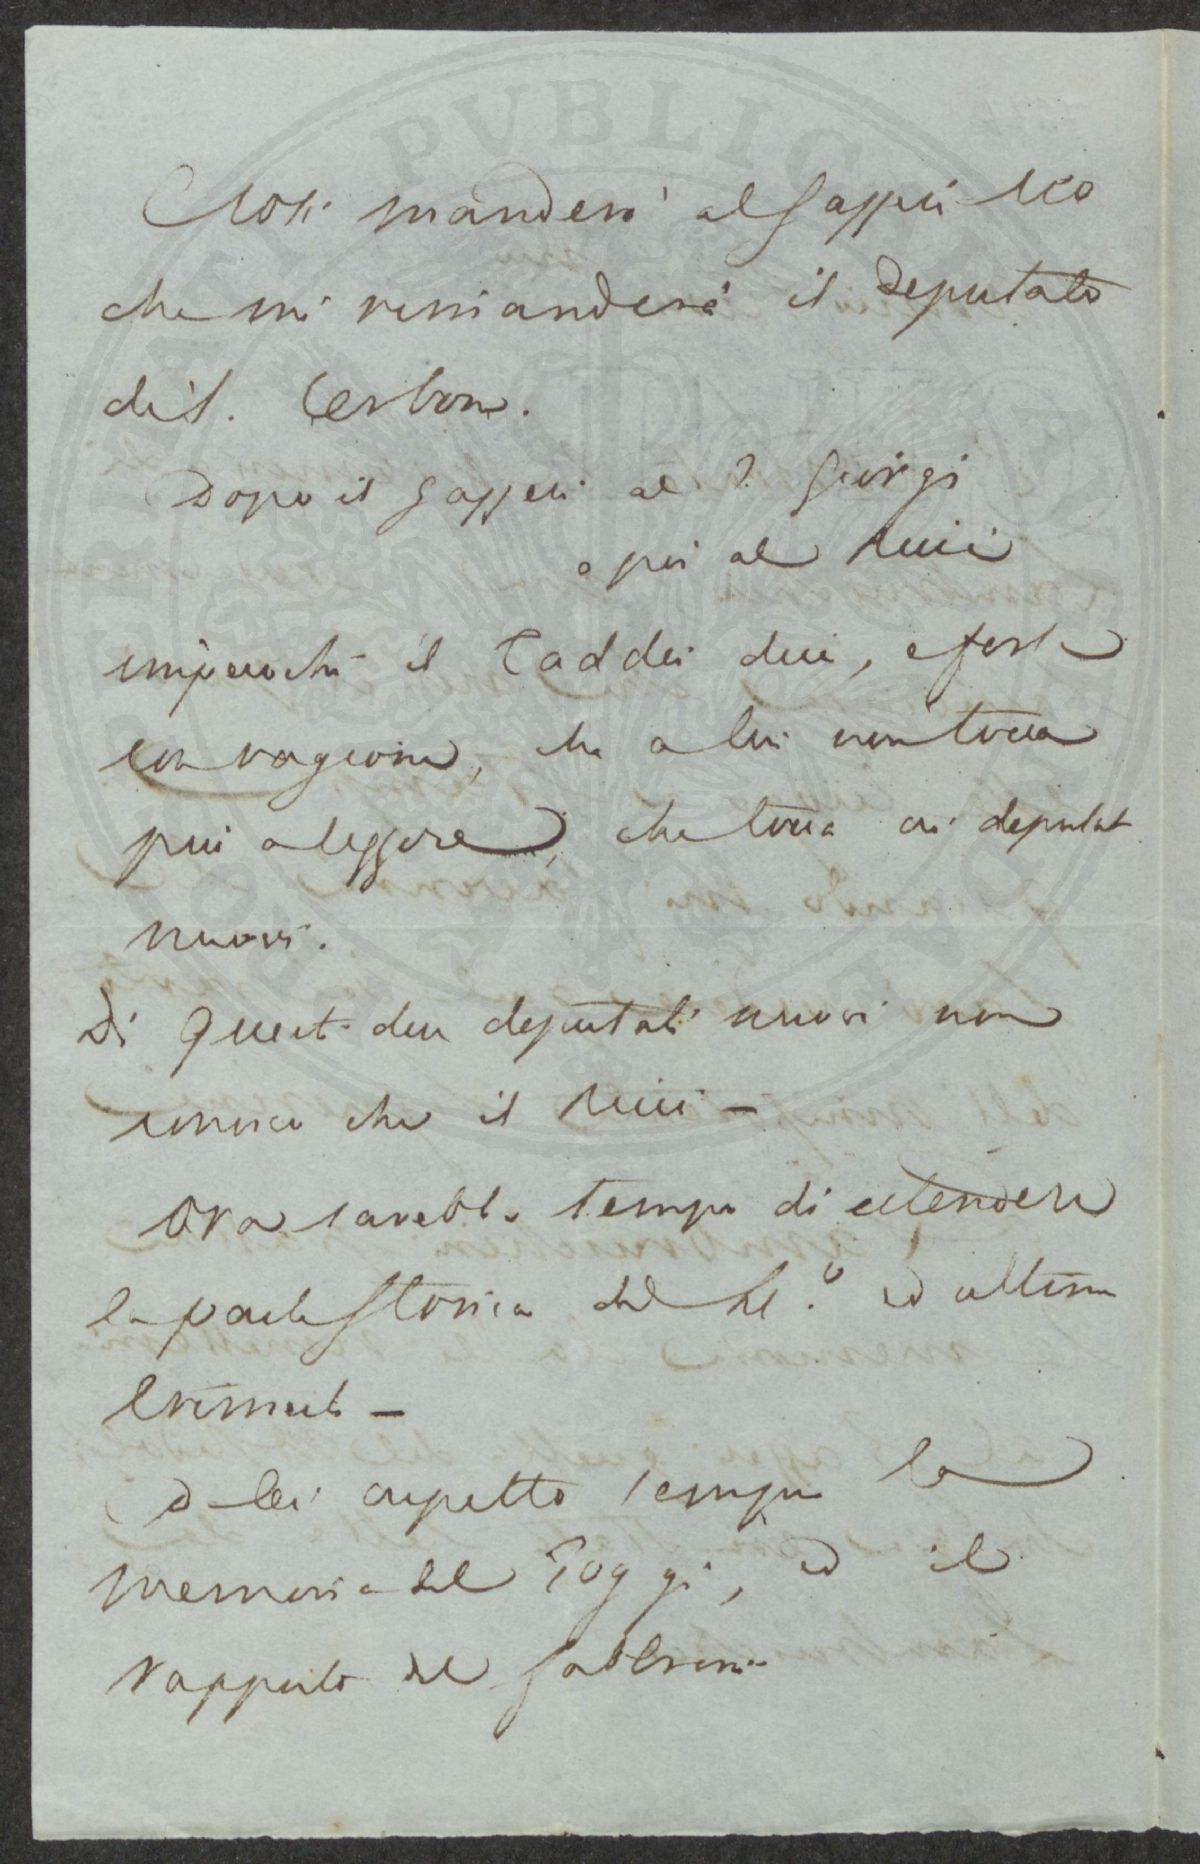 Così manderò al Gazzeri ciò
che mi rimanderà il Deputato
di S. Cerbone.
Dopo il Gazzeri al P. Giorgi
e poi al Ricci
imperochè il Taddei dice, e forse
con ragione, che a lui non tocca
più a leggere, che tocca ai deputati
nuovi.
Di questi due deputati nuovi non
conosco che il Ricci –
Ora sarebbe tempo di estendere
la parte storica del ed ultimo
trimestre –
Da lei aspetto sempre la
memoria del Poggi, ed il
rapporto del Gabbrini